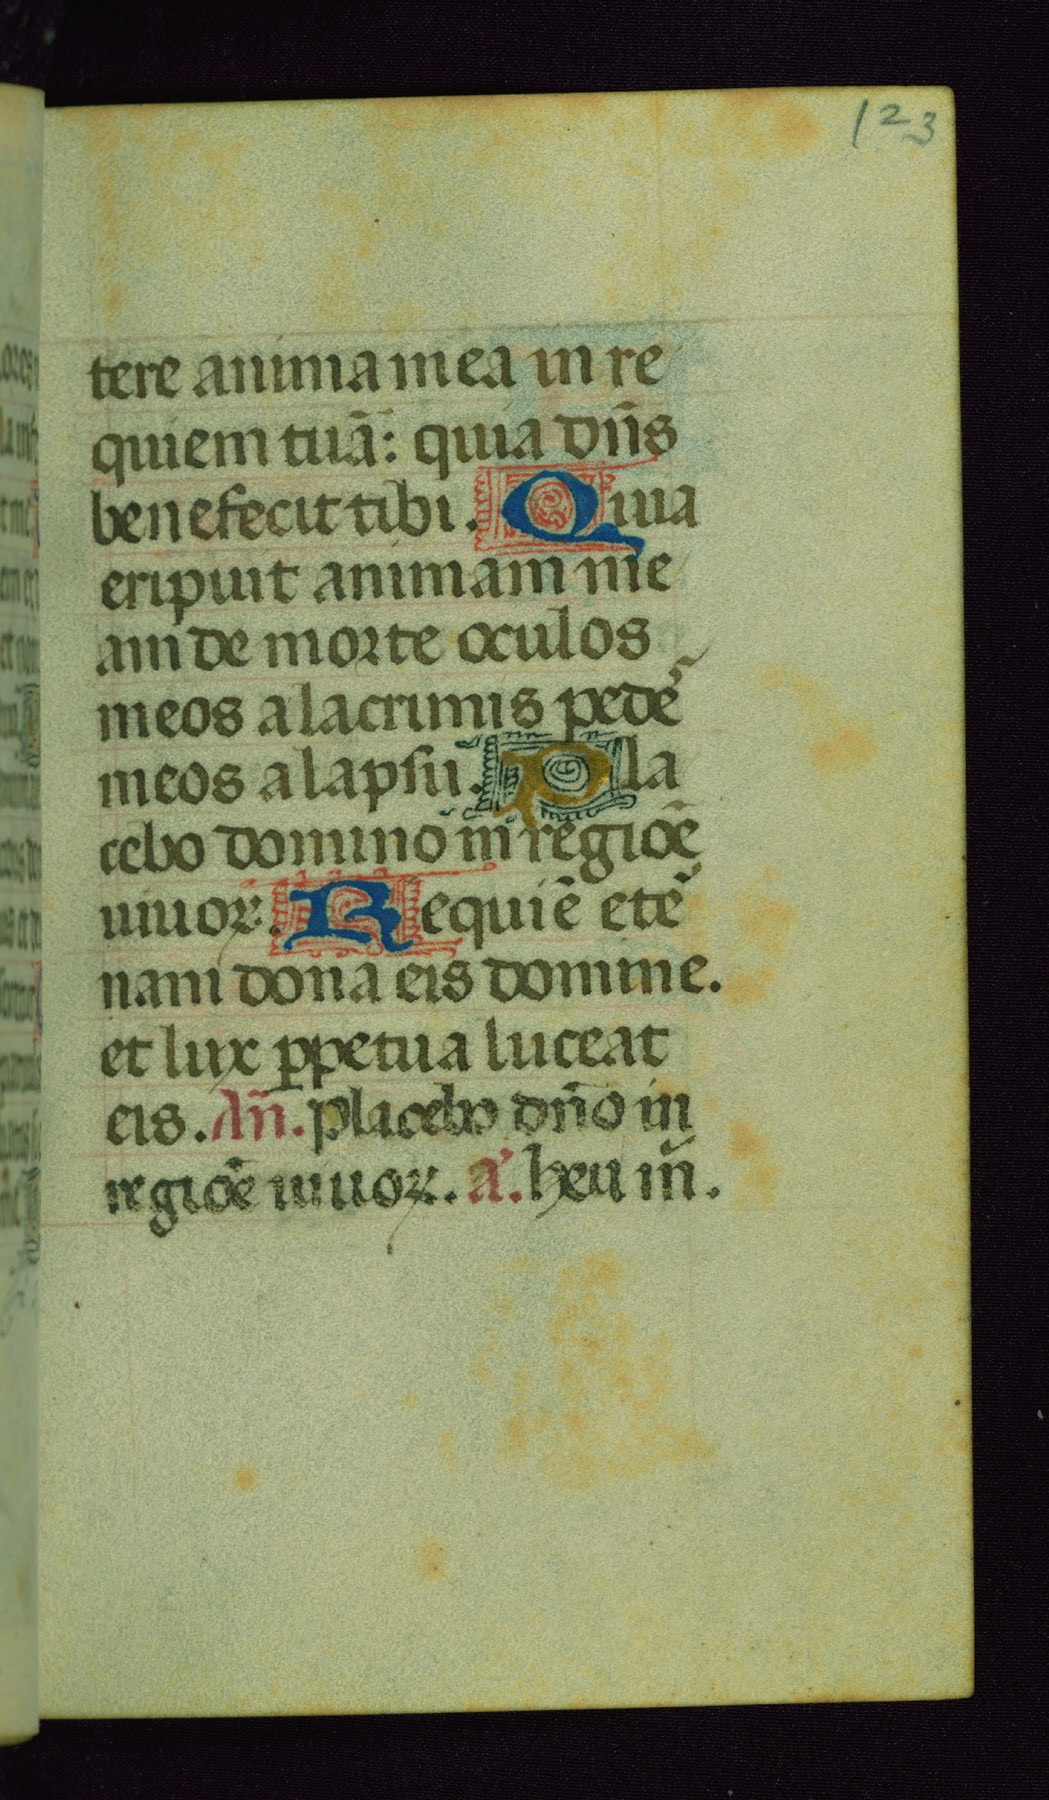 123
tere anima mea in re
quiem tuā: quia dn̄s
benefecit tibi. Quia
eripuit animam me
am de morte oculos
meos a lacrimis pedē
meos a lapsu. Pla
cebo domino in regiōe
uiuoꝝ. Requiē etē
nam dona eis domine.
et lux ꝑpetua luceat
eis. An̄. placebo dn̄o in
regiōe uiuoꝝ. a'. heu m̄.